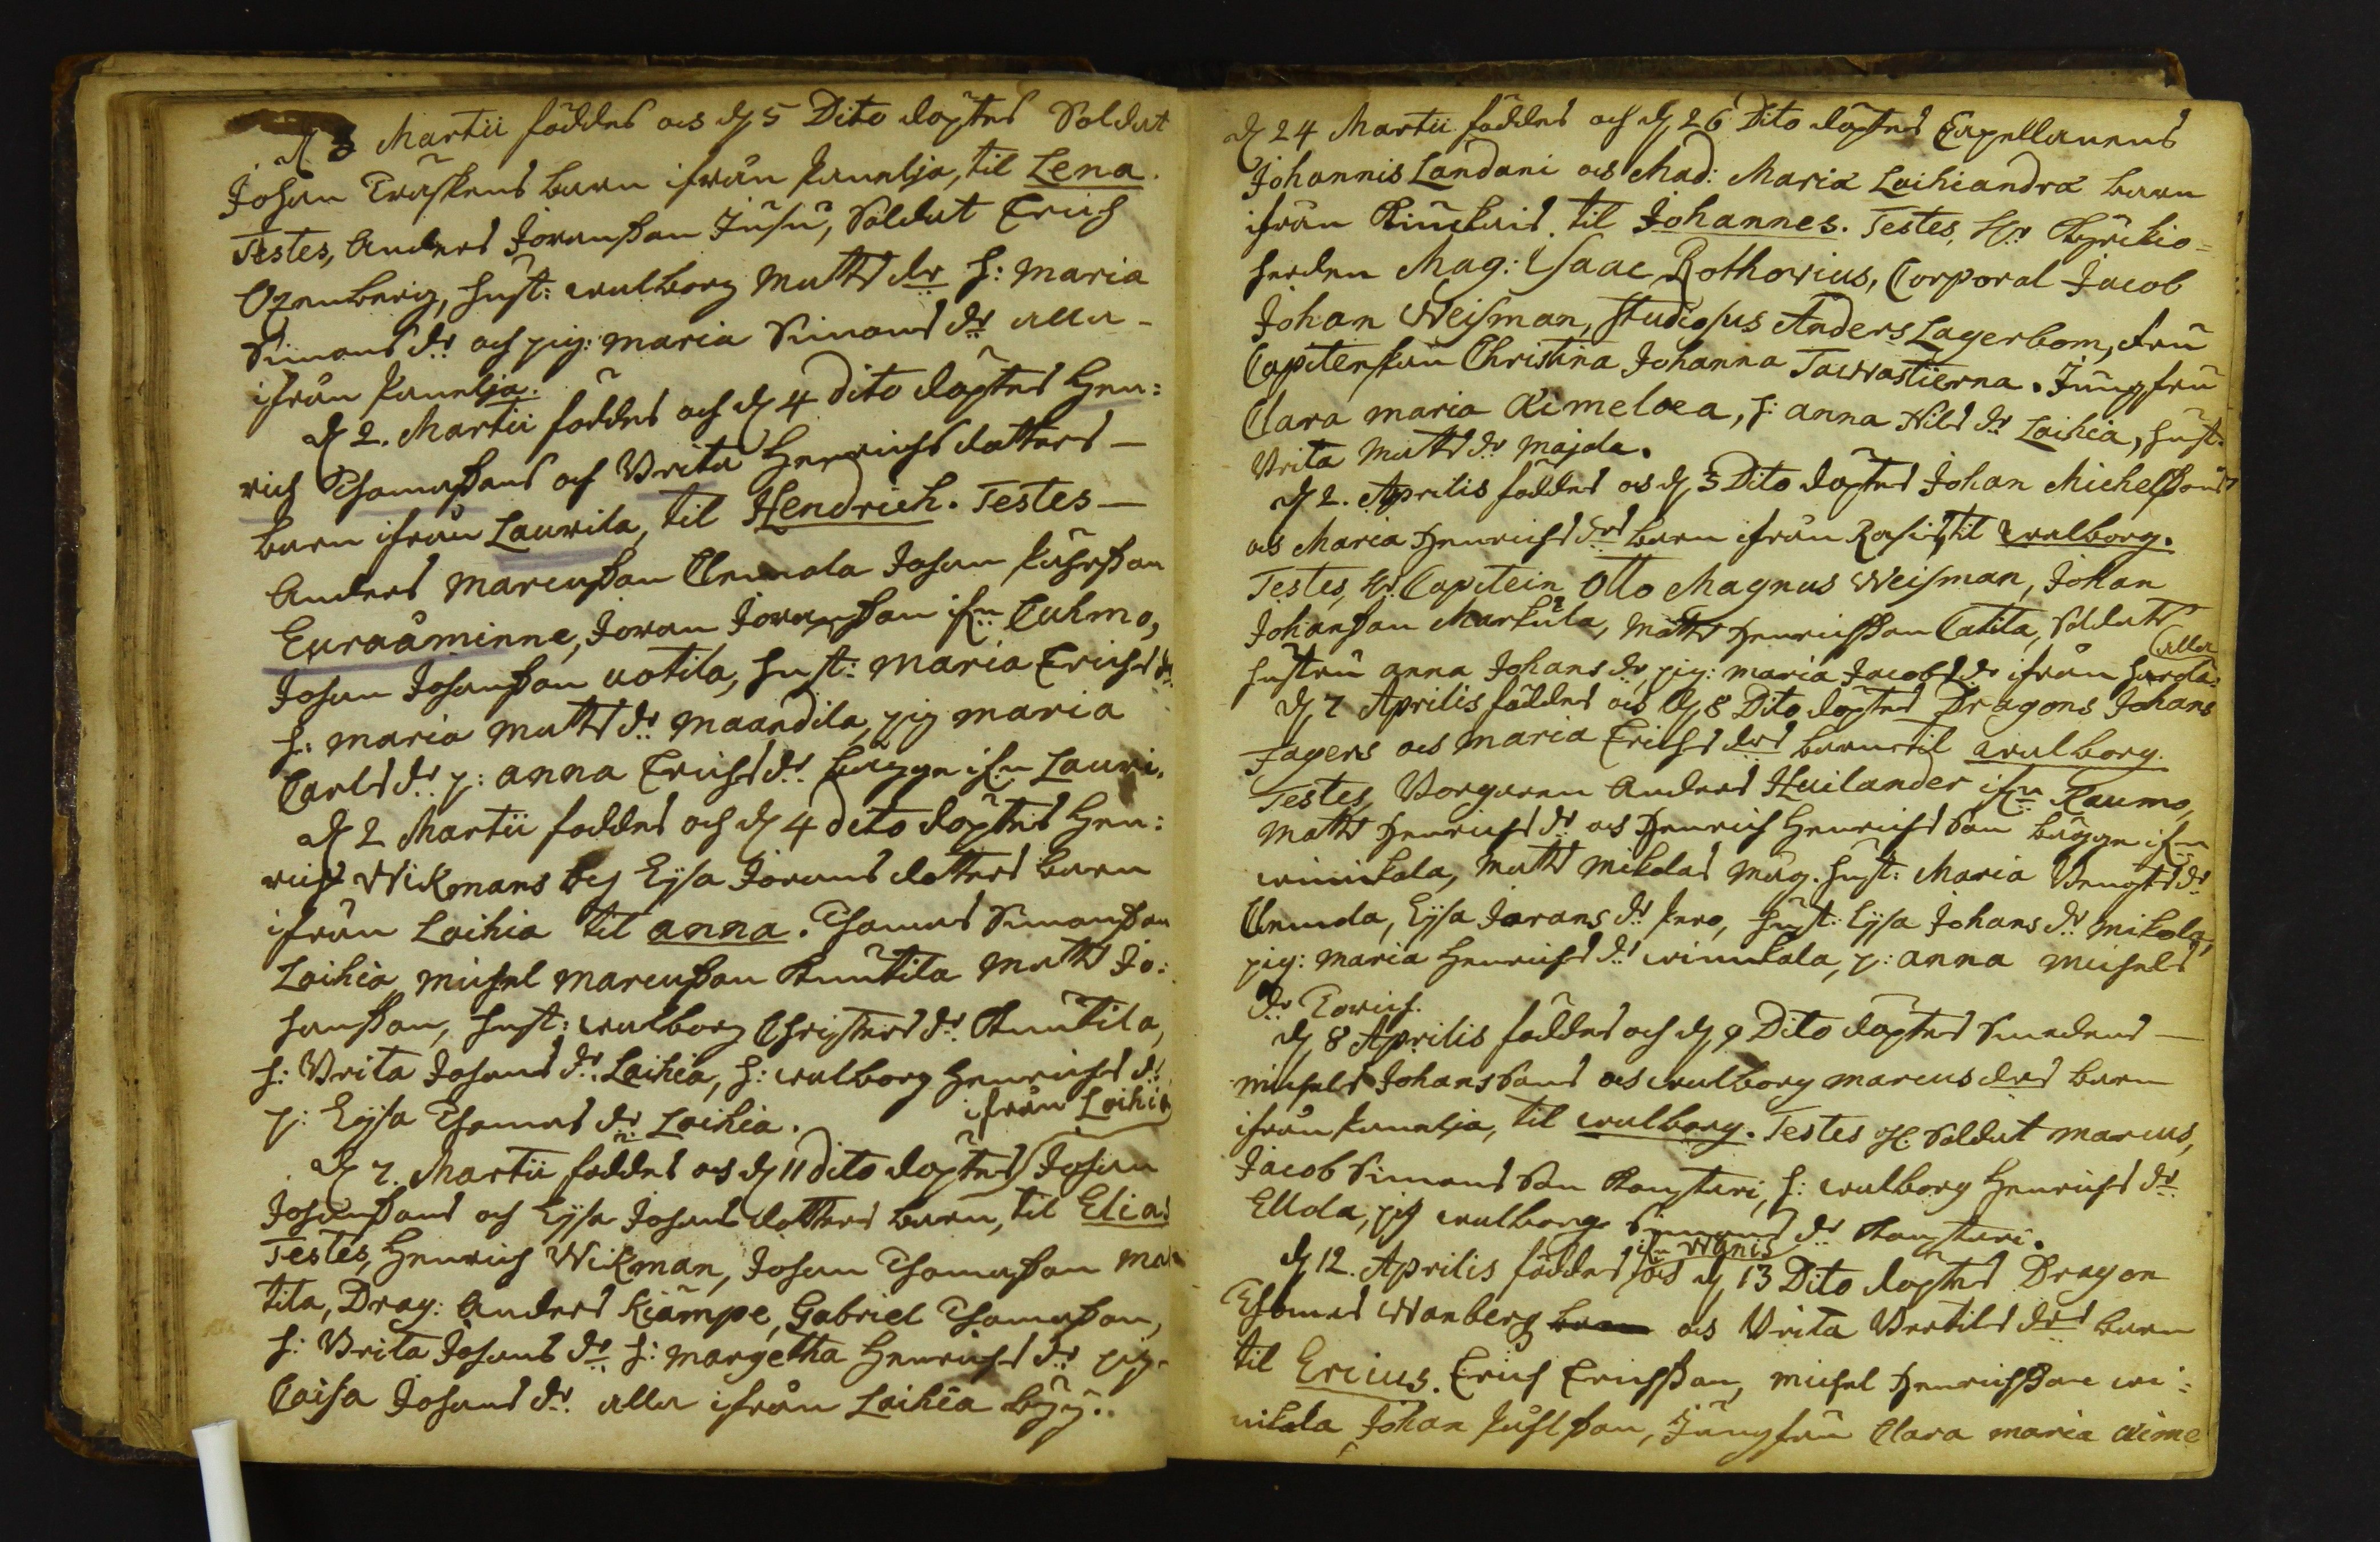 d 3 Martii föddes och d 5 Dito döptes Soldat
Johan Traskens barn ifrån Panelja, til Lena.
Testes, Anders Jöransson Jusu, Soldat Erich
Ozenberg, hust: walborg Matts dr h: Maria
Simons dr och pig: Maria Simons dr alla
ifrån Panelja.
d 2. Martii föddes och d 4 dito döptes Hen=
rich Thomassons och Brita Henrichs dotters
barn ifrån Laurila, til Hendrich. Testes
Anders Marcusson Clemola Johan Påhlsson
Euraåminne, Jöran Jöransson ifrn Cuhmo,
Johan Johansson uotila, hust: Maria Erichs dr
h: Maria Matts dr Maandila, pig Maria
Carls dr p: Anna Erichs dr bägge ifrn Lauri.
d 2 Martii föddes och d 4 dito döptes Hen=
rich Wikmans och Eljsa Jörans dotters barn
ifrån Laihia til Anna. Thomas Simonsson
Laihia, Michel Marcusson Knutila Matts Jo=
hansson, hust: walborg Christers dr Knutila,
h: Brita Johans dr Laihia, h: walborg Henrichs dr
p: Eljsa Thomas dr Laihia. ifrån Laihia
d 7. Martii föddes och d 11 dito döptes Johan
Johanssons och Eljsa Johans dotters barn, til Elias
Testes, Henrich Wikman, Johan Thomasson Ma
tila, Drag: Anders Kiämpe, Gabriel Thomasson,
h: Brita Johans dr h: Margetha Henrichs dr pig
Caisa Johans dr alla ifrån Laihia bÿ.
d 24 Martii föddes och d 26 Dito döptes Capellanens
Johannis Landani och Mad: Maria Laihiandra barn
ifrån Kiukais til Johannes. Testes, Hr Kyrckio=
herden Mag: Isaac Rothovius, Corporal Jacob
Johan Weisman, Studiosus Anders Lagerbom, Fru
Capitenskan Christina Johanna Tawastsierna. Jungfru
Clara Maria Aimeloea, h: Anna Nils dr Laihia, hust:
Brita Matts dr Majda.
d 2. Aprilis föddes och d 3 Dito döptes Johan Michelssons
och Maria Henrichs drs barn ifrån Rasi, til Walborg.
Testes, Hr Capitein Otto Magnus Weisman, Johan
Johansson Markula, Matts Henrichsson Catila, Soldats
hustru Anna Johans dr, pig: Maria Jacobs dr ifrån Harola alla
d 7 Aprilis föddes och d 8 Dito döptes Dragons Johans
Fagers och Maria Erichs drs barn til walborg.
Testes, Borgaren Anders Huilander ifrn Raumo,
Matts Henrichs dr och Henrich Henrichs Son bägge ifrn
winikala, Matts Mikolas Måg. hust: Maria Bengts dr
Clemola, Eljsa Jörans dr Pero, hust: Eljsa Johans dr Mikola,
pig: Maria Henrichs dr winikala, p: Anna Michels
dr
d 8 Aprilis föddes och d 9 Dito döptes Smedens
Michels Johanssons och walborg Marcus drs barn
ifrån Panelja, til walborg. Testes Soldat Marcus,
Jacob Simons Son Kansturi, h: walborg Henrichs dr
Ellda, pig walborg Simons dr Kansturi.
d 12. Aprilis föddes ifrn Wänis och d 13 Dito döptes Dragon
Thomas Wanberg och Brita Bertils drs barn
til Ericus. Erich Erichsson, Michel Henrichsson wi=
nikala Johan Påhlsson, Jungfru Clara Maria Aime